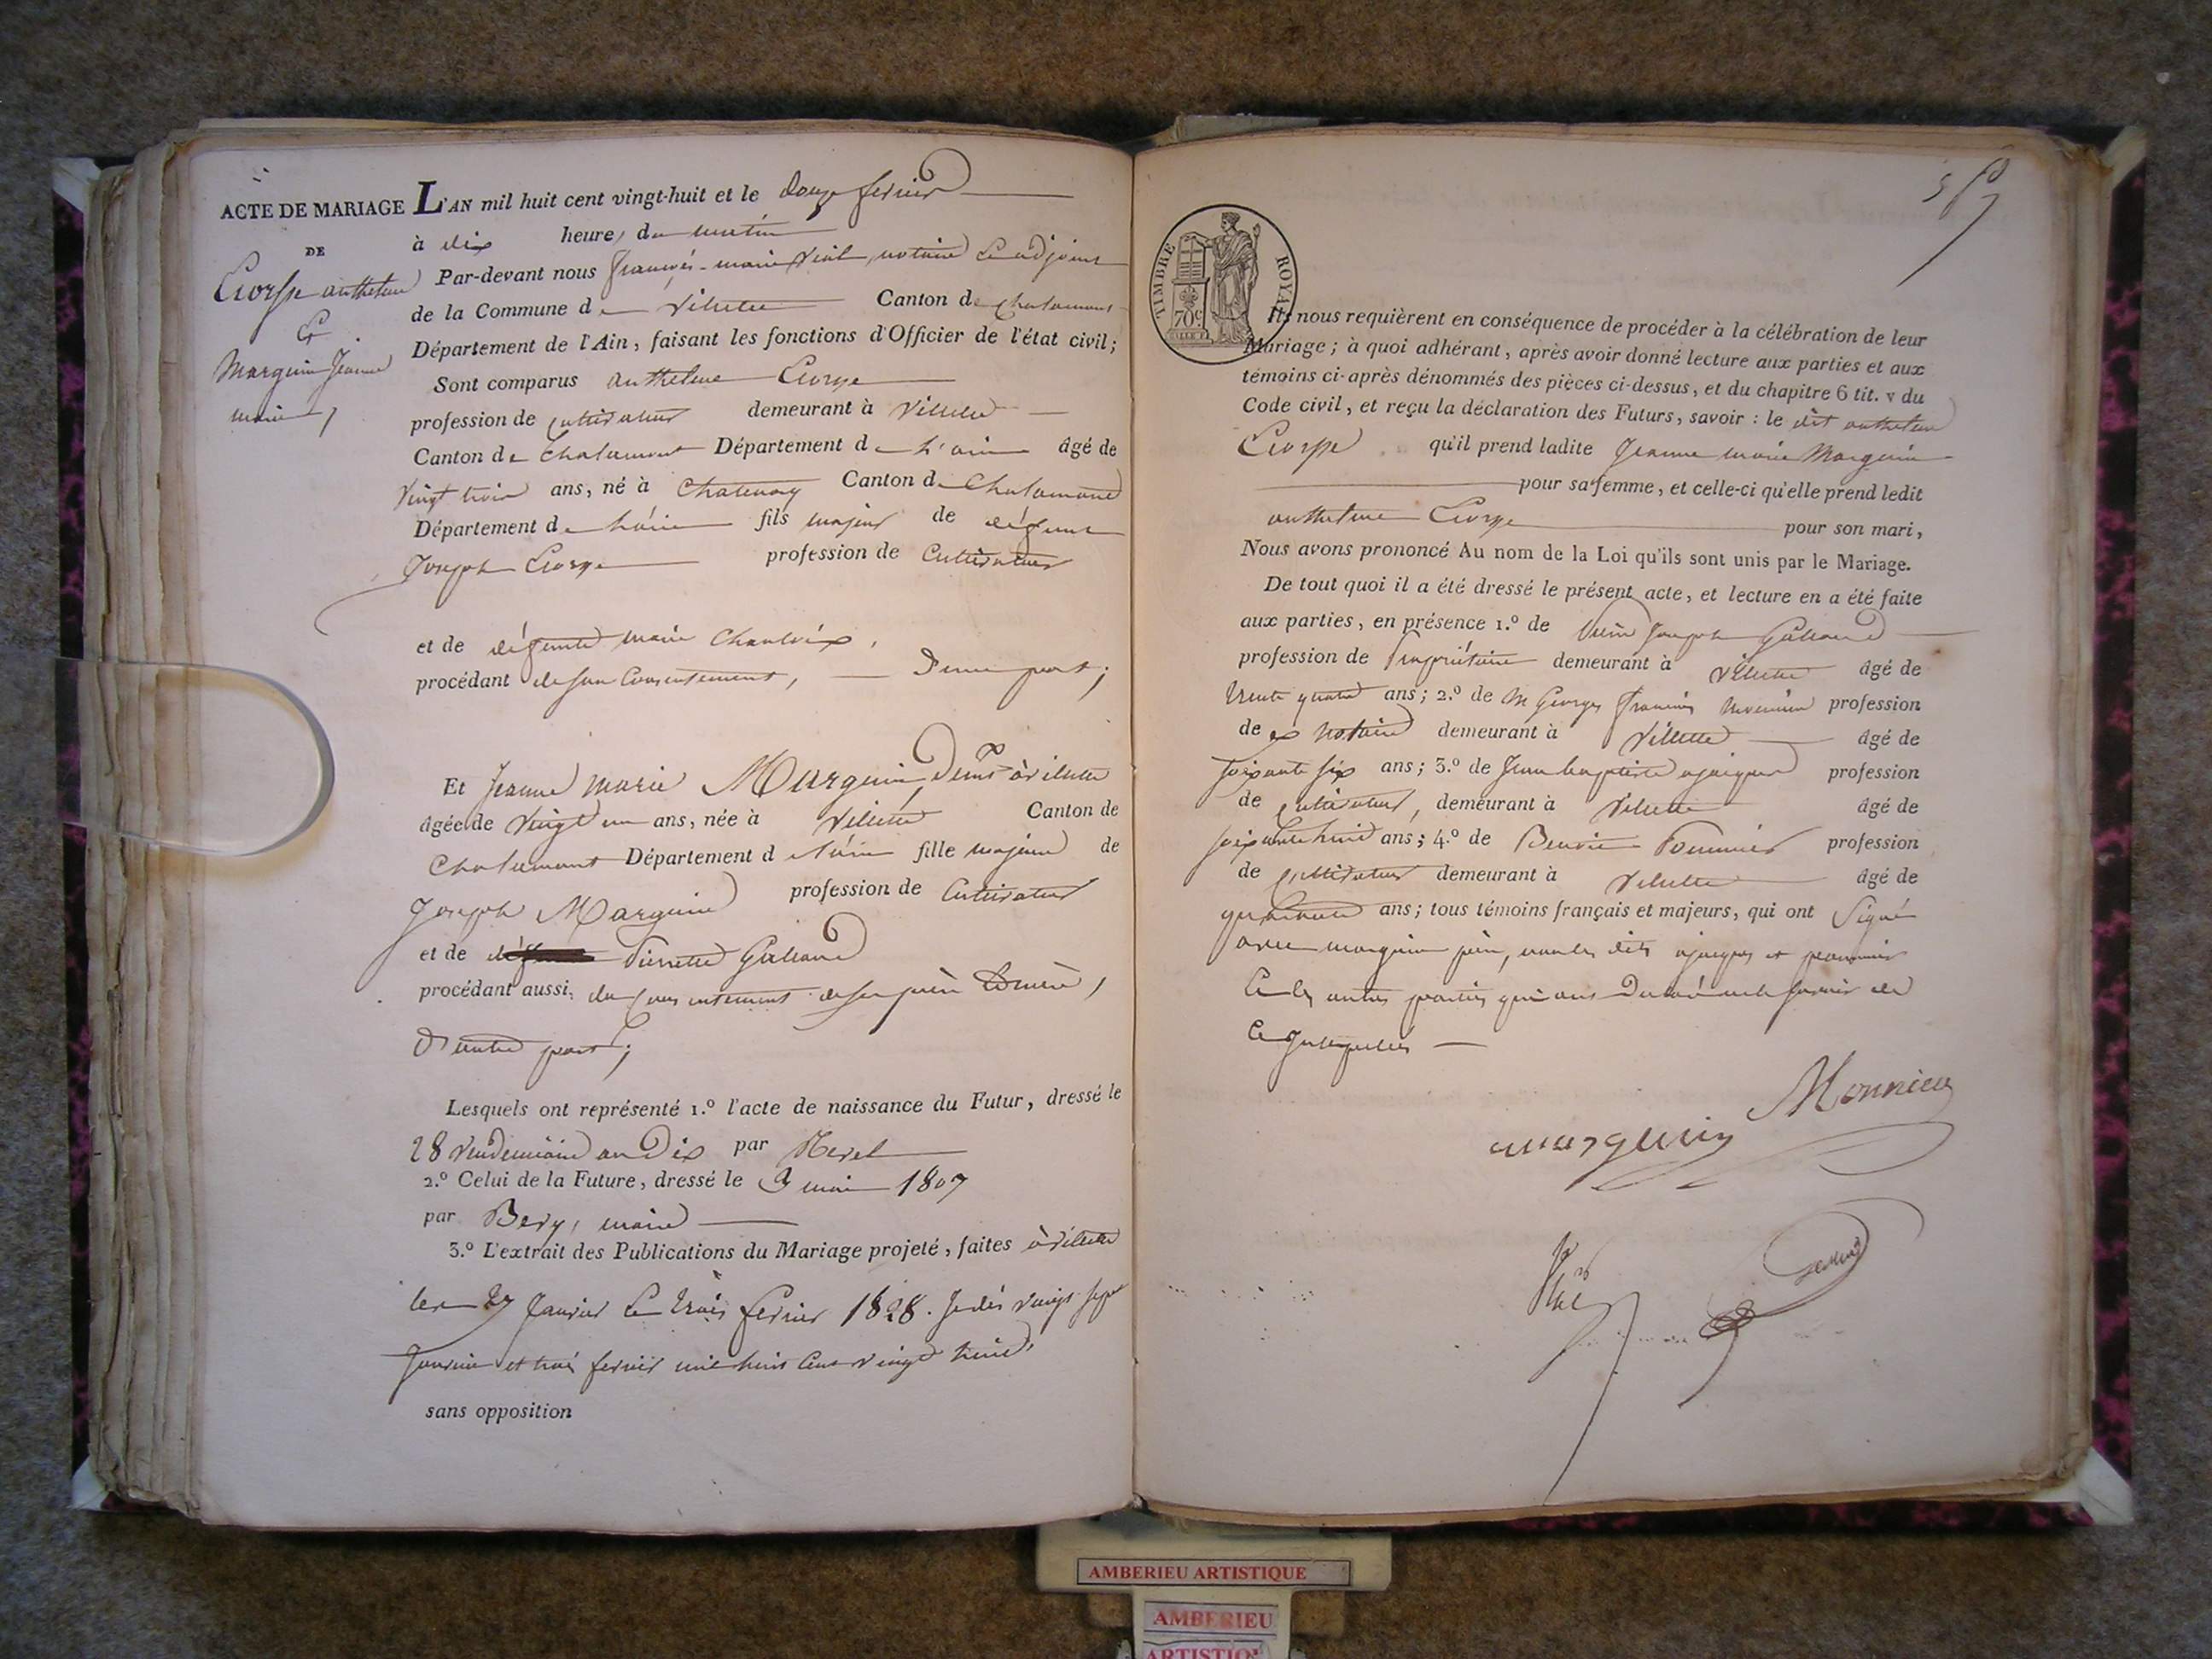 ACTE DE MARIAGE L'AN mil huit cent vingt-huit et le douze fevrier
DE
à dix heures du matin
Par-devant nous françois-marie Vial, notaire et adjoint
de la Commune de Villette Canton de Chalamont
Département de l'Ain, faisant les fonctions d'Officier de l'état civil;
anthelme
&
Marguin Jeanne
marie
Sont comparus anthelme
profession de cultivateur demeurant à Villette
Canton de Chalamont Département de L'ain âgé de
vingt trois ans, né à Chatenay Canton de Chalamont
Département de L'ain fils majeur de défunt
Joseph profession de Cultivateur
et de défunte marie
procédant de son Consentement, D'une part;
Et Jeanne marie Marguin, demt à Villette
âgée de Vingt un ans, née à Villette Canton de
Chalamont Département de l'ain fille majeure de
Joseph Marguin profession de Cultivateur
et de Pierrette Galland
procédant aussi, du consentement de ses père et mère,
D'autre part;
Lesquels ont représenté 1.º l'acte de naissance du Futur, dressé le
28 Vendemiaire an Dix par
2.º Celui de la Future, dressé le mai 1807
par maire
3.º L'extrait des Publications du Mariage projeté, faites à Villette
les 27 Janvier et trois fevrier 1828. Je dis vingt sept
Janvier et trois fevrier mil huit cent vingt huit
sans opposition
TIMBRE ROYAL
70c.
Ils nous requièrent en conséquence de procéder à la célébration de leur
Mariage; à quoi adhérant, après avoir donné lecture aux parties et aux
témoins ci-après dénommés des pièces ci-dessus, et du chapitre 6 tit. v du
Code civil, et reçu la déclaration des Futurs, savoir : le dit anthelme
qu'il prend ladite Jeanne marie Marguin
pour sa femme, et celle-ci qu'elle prend ledit
anthelme pour son mari,
Nous avons prononcé Au nom de la Loi qu'ils sont unis par le Mariage.
De tout quoi il a été dressé le présent acte, et lecture en a été faite
aux parties, en présence 1.º de Joseph Galland
profession de Propriétaire demeurant à Villette âgé de
trente quatre ans; 2.º de M Georges François Monnier profession
de ex Notaire demeurant à Villette âgé de
soixante six ans; 3.º de Jean baptiste profession
de cultivateur, demeurant à Villette âgé de
soixante huit ans; 4.º de Benoit profession
de cultivateur demeurant à Villette âgé de
quarante ans; tous témoins français et majeurs, qui ont Signé
avec marguin père, non les dits et
et les autres parties qui ont Déclaré ne le savoir de
ce Interpellés
Monnier
marguin
AMBERIEU ARTISTIQUE
AMBERIEU